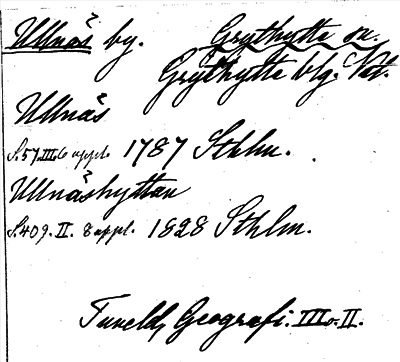 Ullnäs by. Grythytte sn.
Grythytte blg. Vstm.
Ullnäs
S. 57. III. 6 uppl. 1787 Sthlm.
Ullnäshyttan
S. 409. II. 8 uppl. 1828 Sthlm.
Tuneld, Geografi. III o. II.